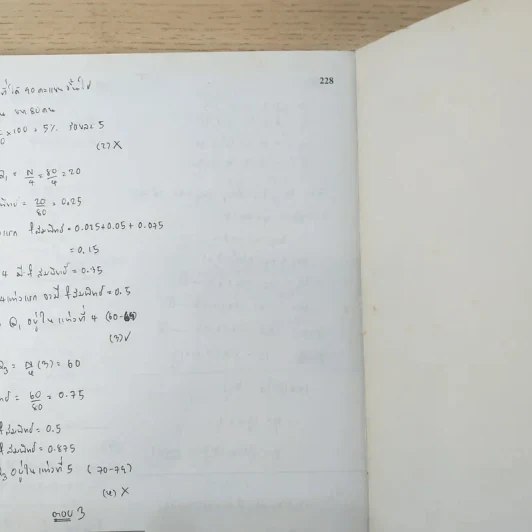 228
ที่ได้ 90 คะแนนขึ้นไป
จาก 80 คน
×100 = 5% ร้อยละ 5
(2) X
Q₁ = N/4 = 80/4 = 20
= 20/80 = 0.25
แรก fสัมพัทธ์ = 0.025+0.05+0.075
= 0.15
4 มี fสัมพัทธ์ = 0.35
4 แท่งแรก จะมี fสัมพัทธ์ = 0.5
Q₁ อยู่ในแท่งที่ 4 (60-69)
(3) ✓
Q₃ = N/4 (3) = 60
= 60/80 = 0.75
fสัมพัทธ์ = 0.5
fสัมพัทธ์ = 0.875
อยู่ในแท่งที่ 5 (70-79)
(4) X
ตอบ 3